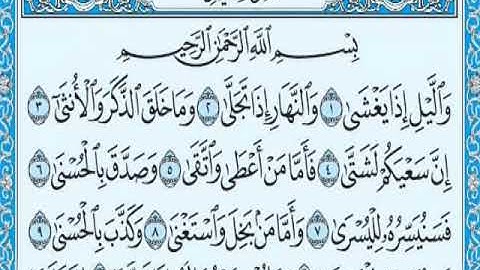 بِسْمِ اللَّهِ الرَّحْمَٰنِ الرَّحِيمِ
وَاللَّيْلِ إِذَا يَغْشَىٰ ١ وَالنَّهَارِ إِذَا تَجَلَّىٰ ٢ وَمَا خَلَقَ الذَّكَرَ وَالْأُنثَىٰ ٣
إِنَّ سَعْيَكُمْ لَشَتَّىٰ ٤ فَأَمَّا مَنْ أَعْطَىٰ وَاتَّقَىٰ ٥ وَصَدَّقَ بِالْحُسْنَىٰ ٦
فَسَنُيَسِّرُهُ لِلْيُسْرَىٰ ٧ وَأَمَّا مَن بَخِلَ وَاسْتَغْنَىٰ ٨ وَكَذَّبَ بِالْحُسْنَىٰ ٩